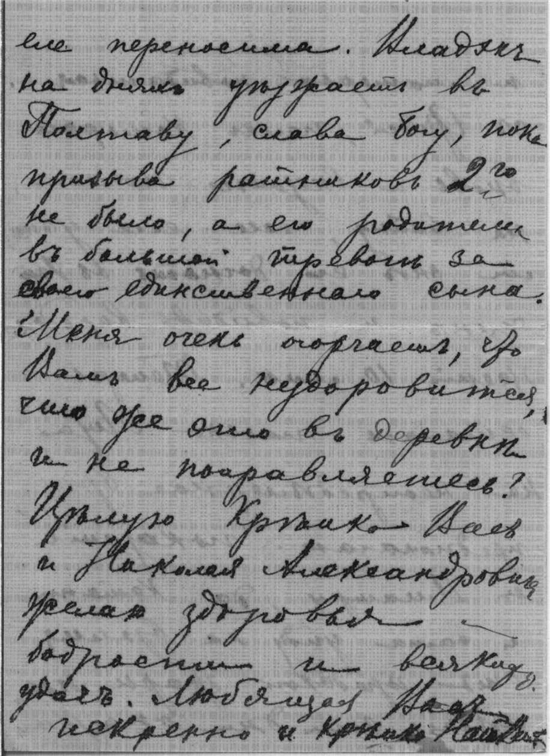 еле переносима. Владэкъ
на дняхъ уѣзжаетъ въ
Полтаву, слава Богу, пока
призыва ратниковъ 2го
не было, а его родители
въ большой тревогѣ за
своего единственнаго сына.
Меня очень огорчаетъ, что
Вамъ все нездоровится,
что же это въ деревнѣ
и не поправляетесь?
Цѣлую крѣпко Васъ
и Николая Александровича
желаю здоровья
бодрости и всякихъ
удачъ. Любящая Васъ
искренно и крѣпко